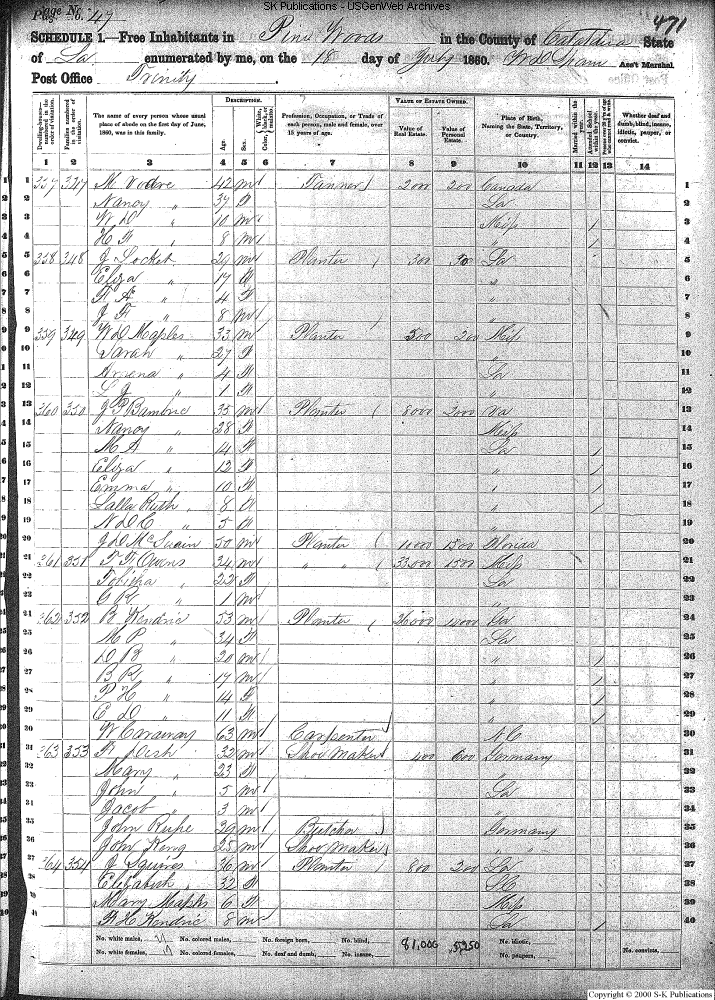 SK Publications - USGenWeb Archives
Page No. 47
471
SCHEDULE 1.—Free Inhabitants in Pine Woods in the County of State
of La enumerated by me, on the 18 day of July 1860. Ass't Marshal.
Post Office Trinity.
Dwelling-houses—numbered in the order of visitation.
Families numbered in the order of visitation.
The name of every person whose usual place of abode on the first day of June, 1860, was in this family.
DESCRIPTION.
Age.
Sex.
Color,
Profession, Occupation, or Trade of each person, male and female, over 15 years of age.
VALUE OF ESTATE OWNED.
Value of Real Estate.
Value of Personal Estate.
Place of Birth, Naming the State, Territory, or Country.
Married within the year.
Attended School within the year.
Whether deaf and dumb, blind, insane, idiotic, pauper, or convict.
1 2 3 4 5 6 7 8 9 10 11 12 13 14
1 357 347 M 42 m Tanner 2000 200 Canada 1
2 Nancy " 37 f La 2
3 W D " 10 m Miss / 3
4 H F " 8 m " / 4
5 358 348 J Locket 29 m Planter 300 50 La 5
6 Eliza " 17 f " 6
7 " 4 f " 7
8 J F " 8 m " 8
9 359 349 W D Maples 33 m Planter 500 200 Miss 9
10 Sarah " 27 f " 10
11 " 4 f La 11
12 L J " 1 f " 12
13 360 350 J P Bambric 35 m Planter 8000 2000 Va 13
14 Nancy " 28 f Miss 14
15 M A " 14 f La / 15
16 Eliza " 12 f " / 16
17 Emma " 10 f " / 17
18 Lalla Ruth " 8 f " / 18
19 N D C " 5 f " 19
20 J D McSwain 50 m Planter 1500 Florida 20
21 361 351 T F Owens 34 m " " 33,000 1500 Miss 21
22 Tobitha " 22 f La 22
23 " 1 m " 23
24 362 352 B Kendric 53 m Planter 26,000 24
25 M P " 34 f La 25
26 D B " 20 m " / 26
27 B R " 17 m " / 27
28 P H " 14 f " / 28
29 E D " 11 f " / 29
30 W Caraway 63 m Carpenter N C 30
31 363 353 32 m Shoe Maker 400 Germany 31
32 Mary " 23 f " 32
33 John " 5 m La 33
34 Jacob " 3 m " 34
35 John Rupe 29 m Butcher Germany 35
36 John King 25 m Shoe Maker " " 36
37 364 354 J Squires 36 m Planter 800 200 La 37
38 Elizabeth " 32 f 38
39 Mary Maples 6 f Miss 39
40 B H Kendric 8 m La / 40
No. white males, 21 No. colored males, No. foreign born, No. blind, 81,000 No. idiotic,
No. white females, 19 No. colored females, No. deaf and dumb, No. insane, No. paupers, No. convicts,
Copyright © 2000 S-K Publications